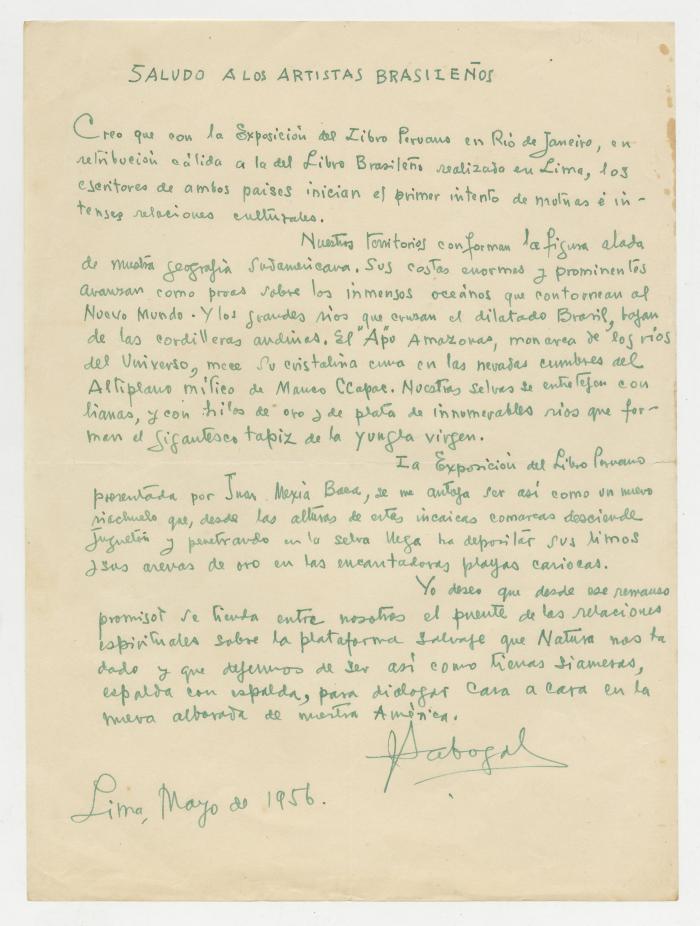 SALUDO A LOS ARTISTAS BRASILEÑOS
Creo que con la Exposición del Libro Peruano en Río de Janeiro, en
retribución cálida a la del Libro Brasileño realizada en Lima, los
escritores de ambos paises inician el primer intento de motuas é in-
tensas relaciones culturales.
Nuestros territorios conforman la figura alada
de nuestra geografía sudamericana. Sus costas enormes y prominentes
avanzan como proas sobre los inmensos oceános que contornean al
Nuevo Mundo. Y los grandes rios que cruzan el dilatado Brasil, bajan
de las cordilleras andinas. El "Apu" Amazonas, monarca de los ríos
del Universo, mece su cristalina cuna en las nevadas cumbres del
Altiplano mítico de Manco CCapac. Nuestras selvas se entretejen con
lianas, y con hilos de oro y de plata de innumerables rios que for-
man el gigantesco tapiz de la yungla virgen.
La Exposición del Libro Peruano
presentada por Juan Mexía Baca, se me antoja ser así como un nuevo
riachuelo que, desde las alturas de estas incaicas comarcas desciende
juguetón y penetrando en la selva llega ha depositar sus limos
y sus arenas de oro en las encantadoras playas cariocas.
Yo deseo que desde ese remanso
promisor se tienda entre nosotros el puente de las relaciones
espirituales sobre la plataforma salvaje que Natura nos ha
dado y que dejemos de ser así como tierras siamesas,
espalda con espalda, para dialogar cara a cara en la
nueva alborada de nuestra América.
JSabogal
Lima, Mayo de 1956.